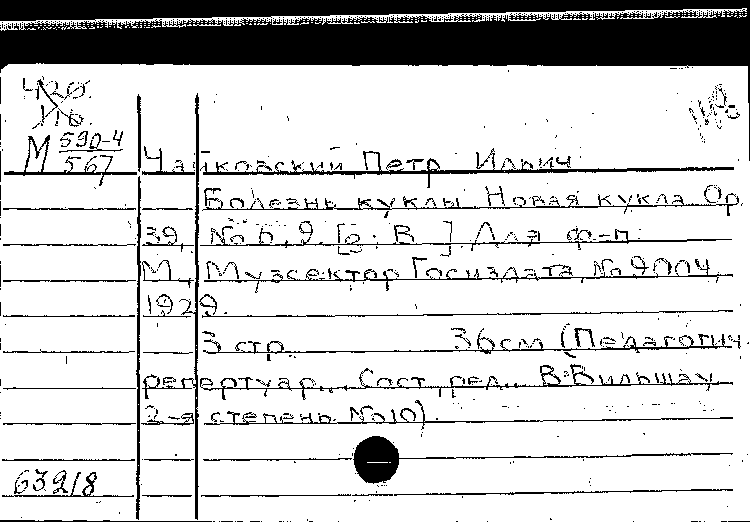 М 590-4
567
Чайковский Петр Ильич
Болезнь куклы. Новая кукла. Ор.
39, № 6, 9. [g : B ]. Для ф-п.
М., Музсектор Госиздата, № 9004,
1929.
3 стр. 36см (Педагогич.
репертуар... Сост., ред... В. Вильшау
2-я степень. №10).
63218